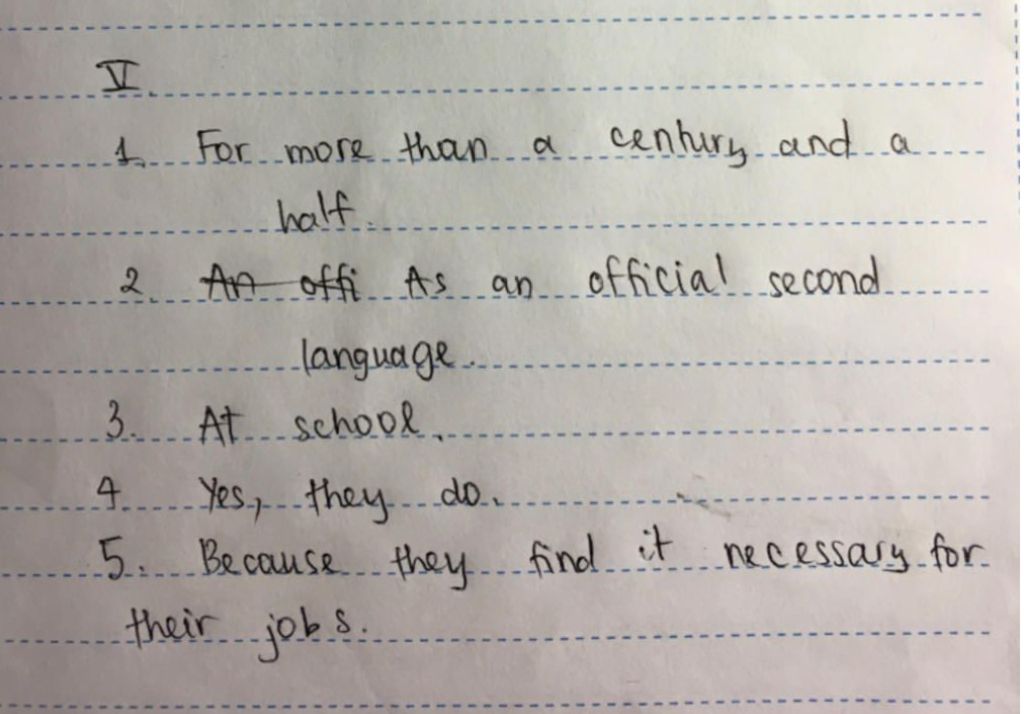 V.
1. For more than a century and a
half.
2. An offi As an official second
language.
3. At school.
4 Yes, they do.
5. Because they find it necessary for
their jobs.